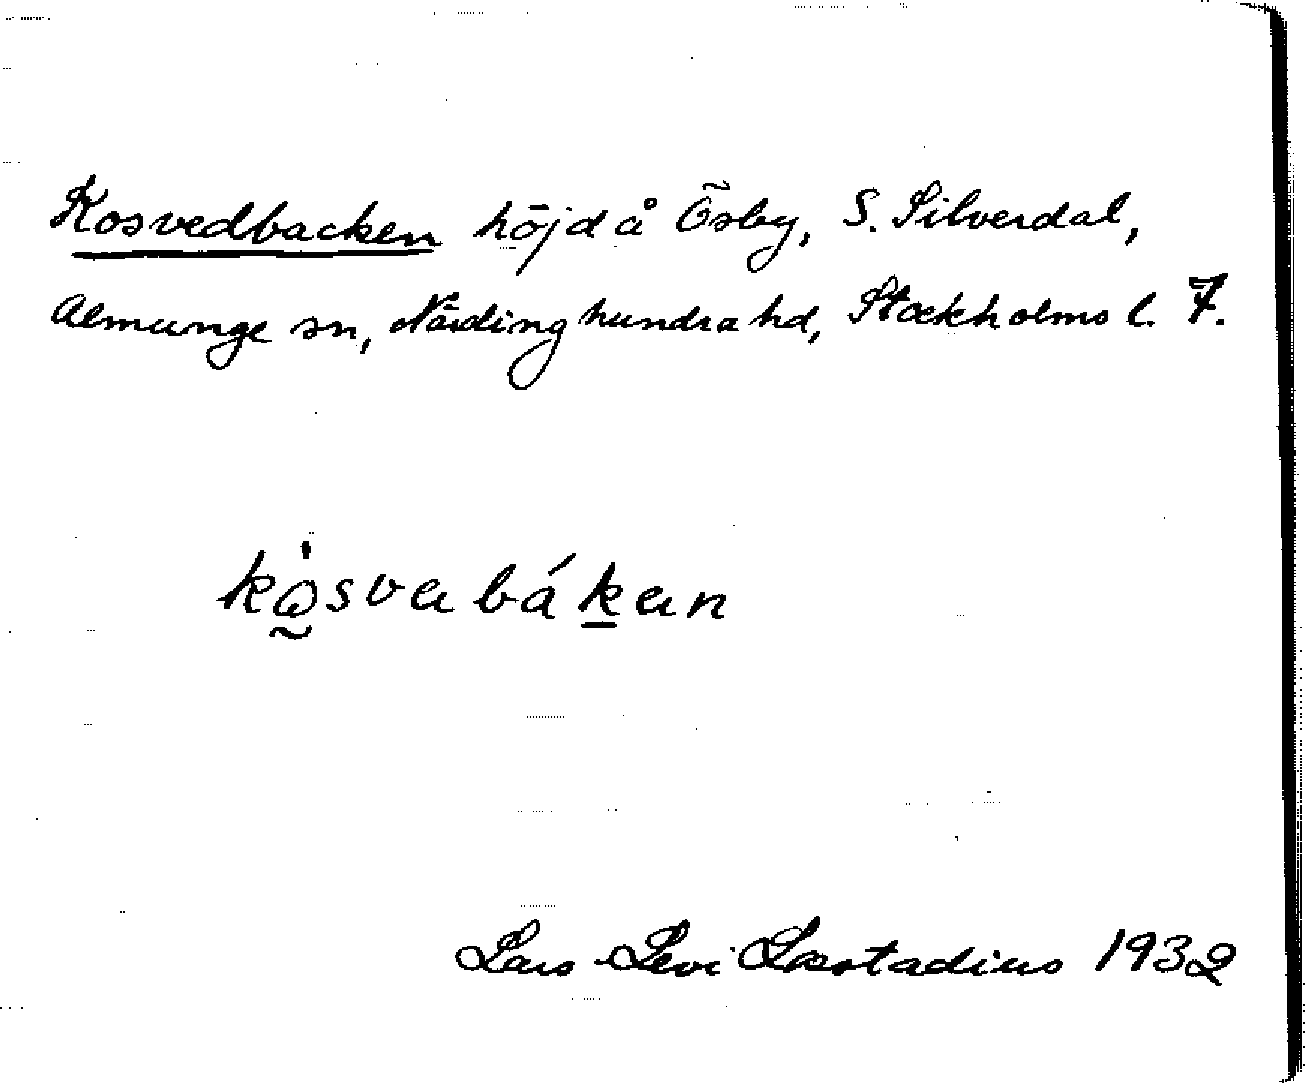 Kosvedbacken höjd å Ösby, S. Silverdal,
Almunge sn, Närdinghundra hd, Stockholms l. 7.
kòsvabákan
Lars Levi Læstadius 1932